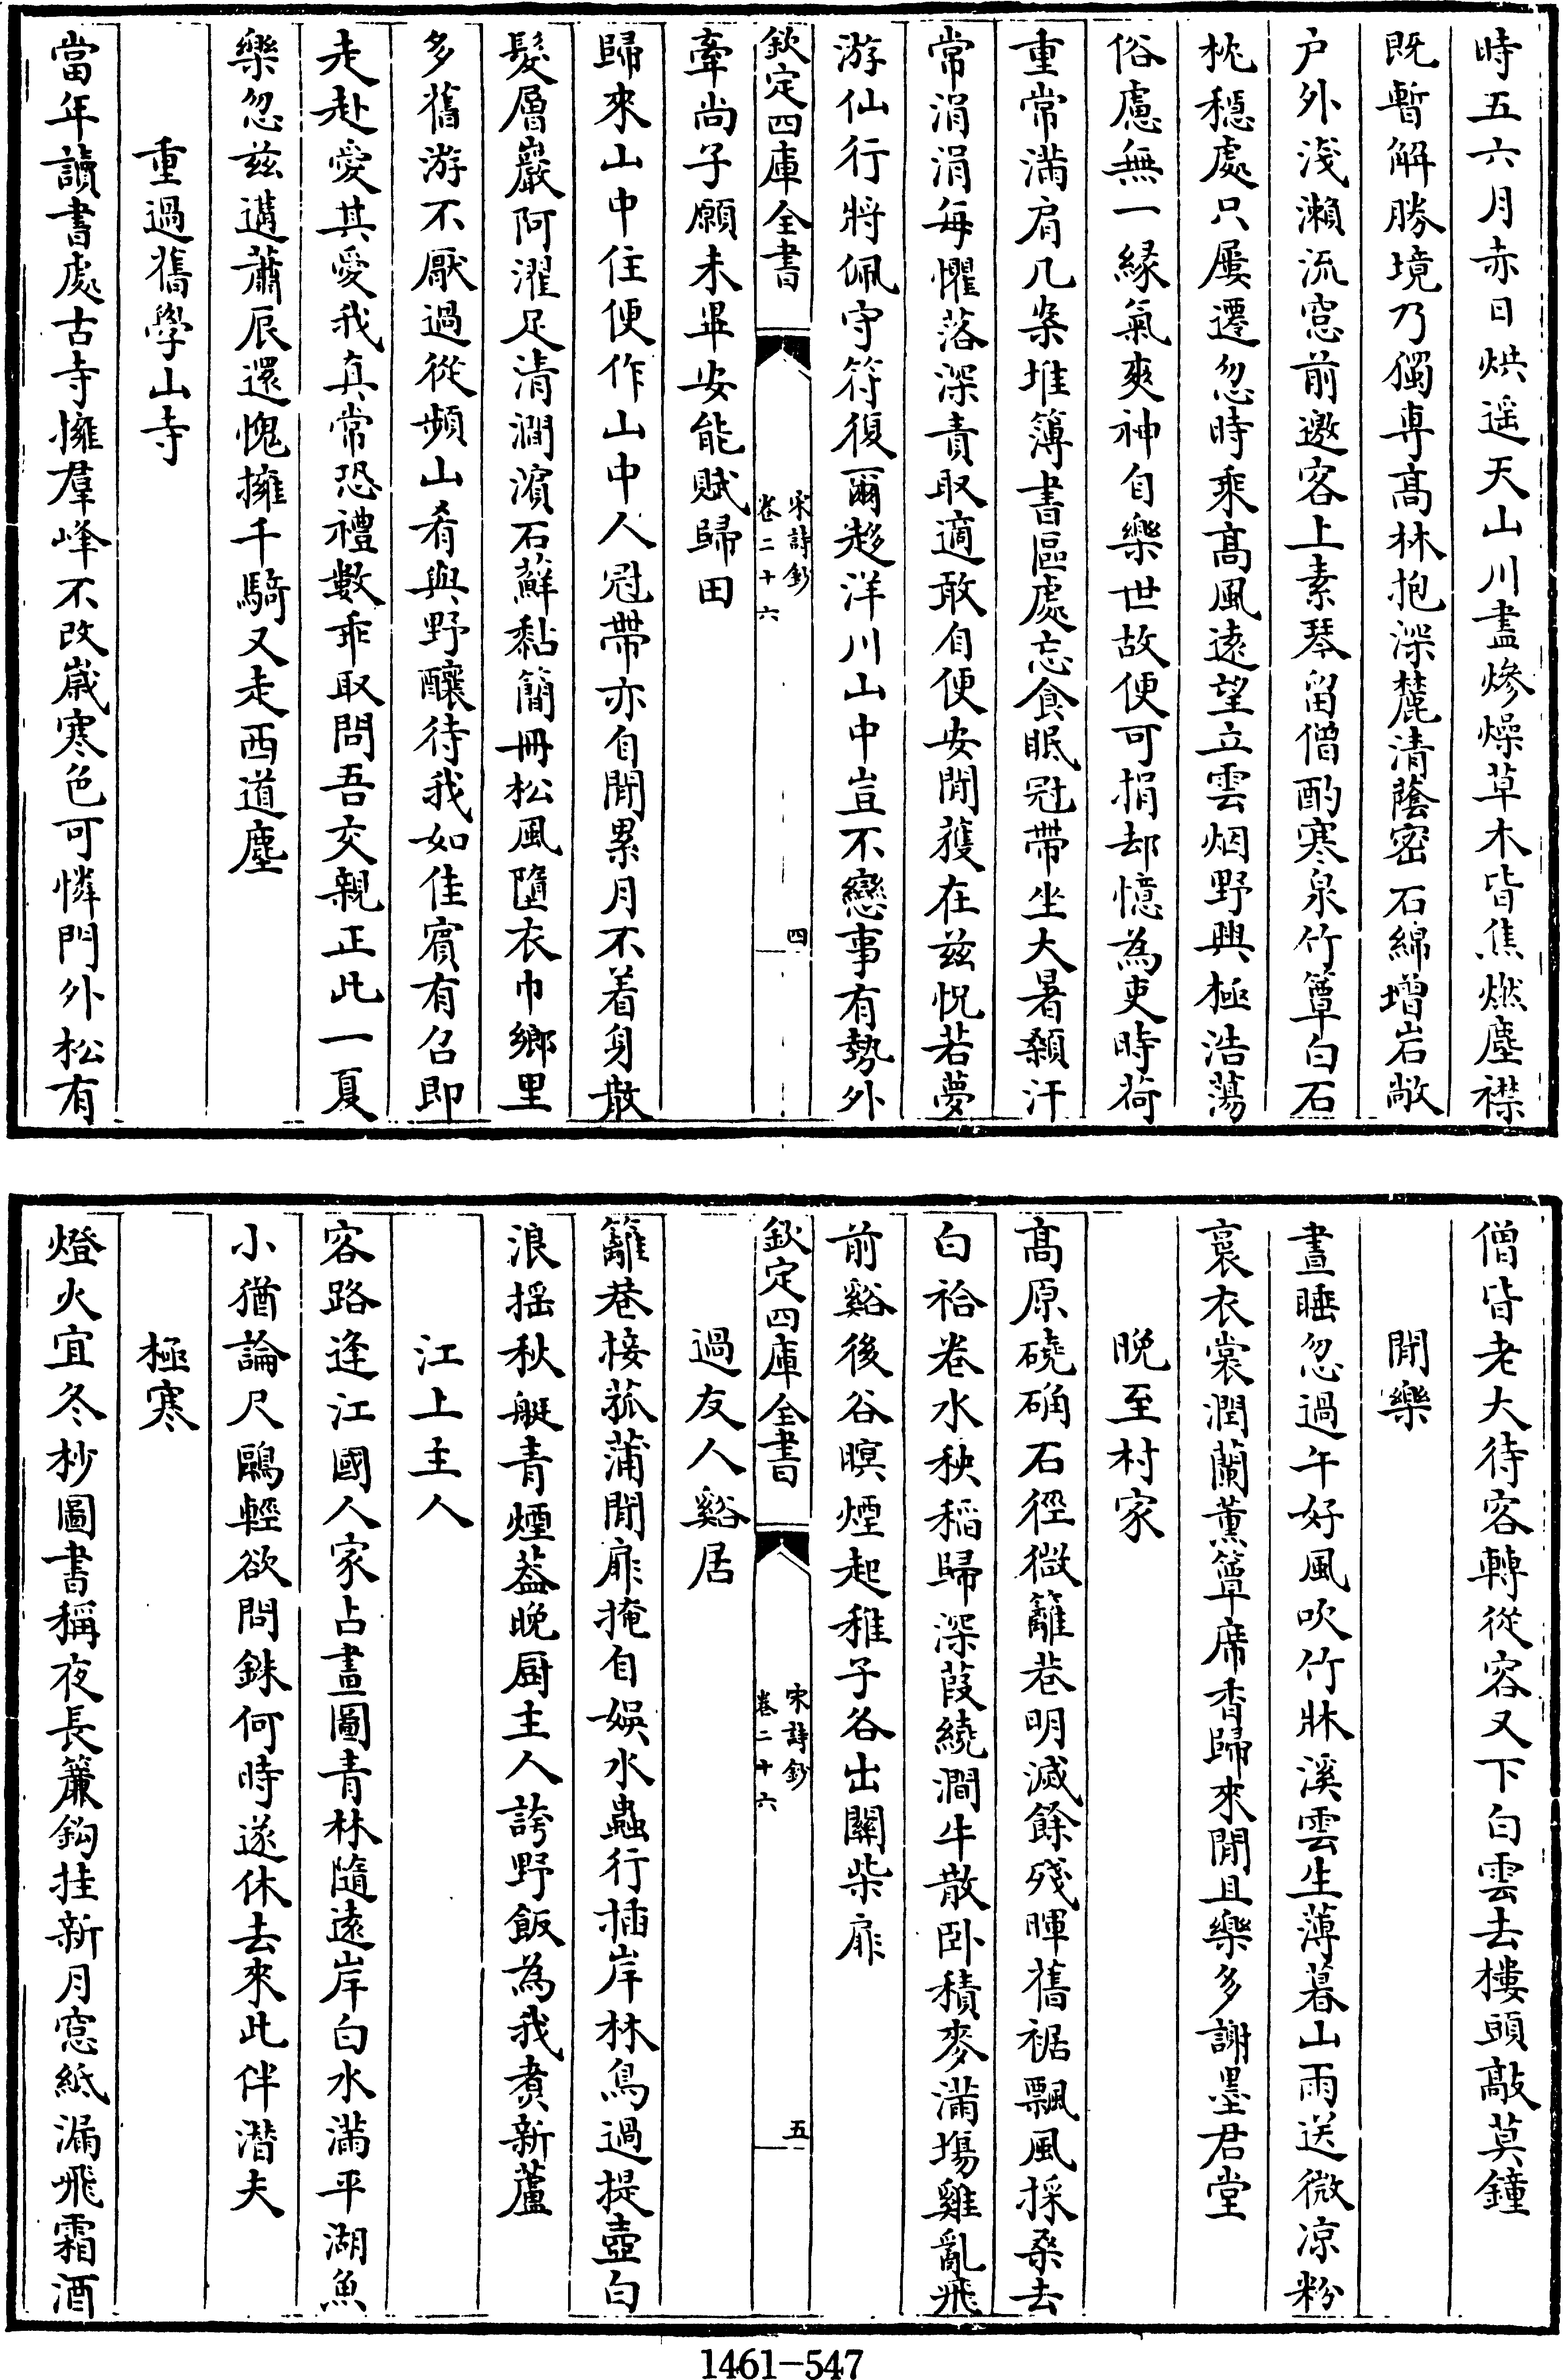 時五六月赤日烘遥天山川盡熮燥草木皆焦燃塵襟
既暫解勝境乃獨專髙林抱深麓清蔭密石綿增岩敞
户外淺瀨流窓前邀客上素琴留僧酌寒泉竹簟白石
枕穏處只屢遷忽時乘髙風遠望立雲烟野興極浩蕩
俗慮無一縁氣爽神自樂世故便可捐却憶為吏時荷
重常滿肩几案堆簿書區處忘食眠冠帶坐大暑顙汗
常涓涓每懼落深責取適敢自便安閒獲在兹怳若夢
游仙行將佩守符復爾趍洋川山中豈不戀事有勢外
欽定四庫全書
宋詩鈔
卷二十六
四
牽尚子願未畢安能賦歸田
歸來山中住便作山中人冠帶亦自閒累月不着身散
髮層巖阿濯足清澗濱石蘚黏簡冊松風墮衣巾鄉里
多舊游不厭過從頻山肴與野釀待我如佳賓有召即
走赴愛其愛我真常恐禮數乖取問吾交親正此一夏
樂忽兹邁蕭辰還愧擁千騎又走西道塵
重過舊學山寺
當年讀書處古寺擁羣峰不改歳寒色可憐門外松有
僧皆老大待客轉從容又下白雲去樓頭敲莫鐘
閒樂
晝睡忽過午好風吹竹牀溪雲生薄暮山雨送微凉粉
裛衣裳潤蘭薰簟席香歸來閒且樂多謝墨君堂
晩至村家
髙原磽确石徑微籬巷明滅餘殘暉舊裾飄風採桑去
白袷卷水秧稻歸深葭繞澗牛散卧積麥滿塲雞亂飛
前谿後谷暝煙起稚子各出關柴扉
欽定四庫全書
宋詩鈔
卷二十六
五
過友人谿居
籬巷接菰蒲閒扉掩自娱水蟲行插岸林鳥過提壺白
浪揺秋艇青煙葢晩厨主人誇野飯為我煑新蘆
江上主人
客路逢江國人家占畫圖青林隨遠岸白水滿平湖魚
小猶論尺鷗輕欲問銖何時遂休去來此伴潛夫
極寒
燈火宜冬杪圖書稱夜長簾鈎挂新月窓紙漏飛霜酒
1461-547